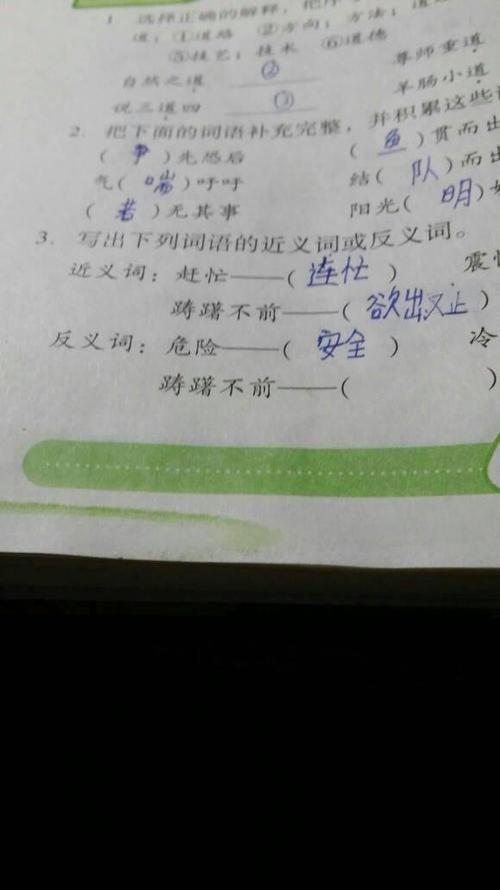 1 选择正确的解释，把序
道：①道路 ②方向；方法；道
⑤技艺；技术 ⑥道德
自然之道 ② 尊师重道
说三道四 ③ 羊肠小道
2. 把下面的词语补充完整，并积累这些
( 争 )先恐后 ( 鱼 )贯而出
气( 喘 )吁吁 结( 队 )而出
( 若 )无其事 阳光( 明 )
3. 写出下列词语的近义词或反义词。
近义词：赶忙——( 连忙 ) 震
踌躇不前——( 欲出又止 )
反义词：危险——( 安全 ) 冷
踌躇不前——( )